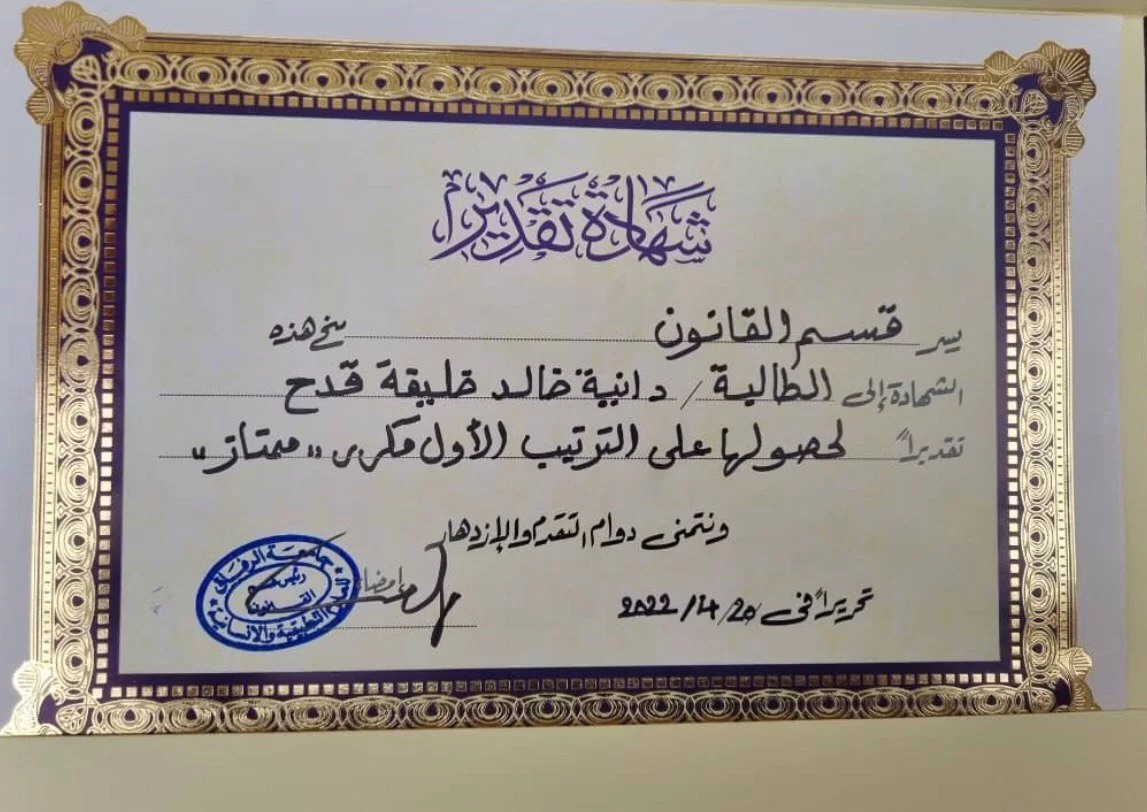 شهادة تقدير
يسر قسم القانون منح هذه
الشهادة إلى الطالبة / دانية خالد خليفة قدح
تقديراً لحصولها على الترتيب الأول مكرر "ممتاز"
ونتمنى دوام التقدم والإزدهار
إمضاء
تحريراً في 20/4/2022
جامعة الرفاق
رئيس قسم
القانون
للعلوم التطبيقية والإنسانية